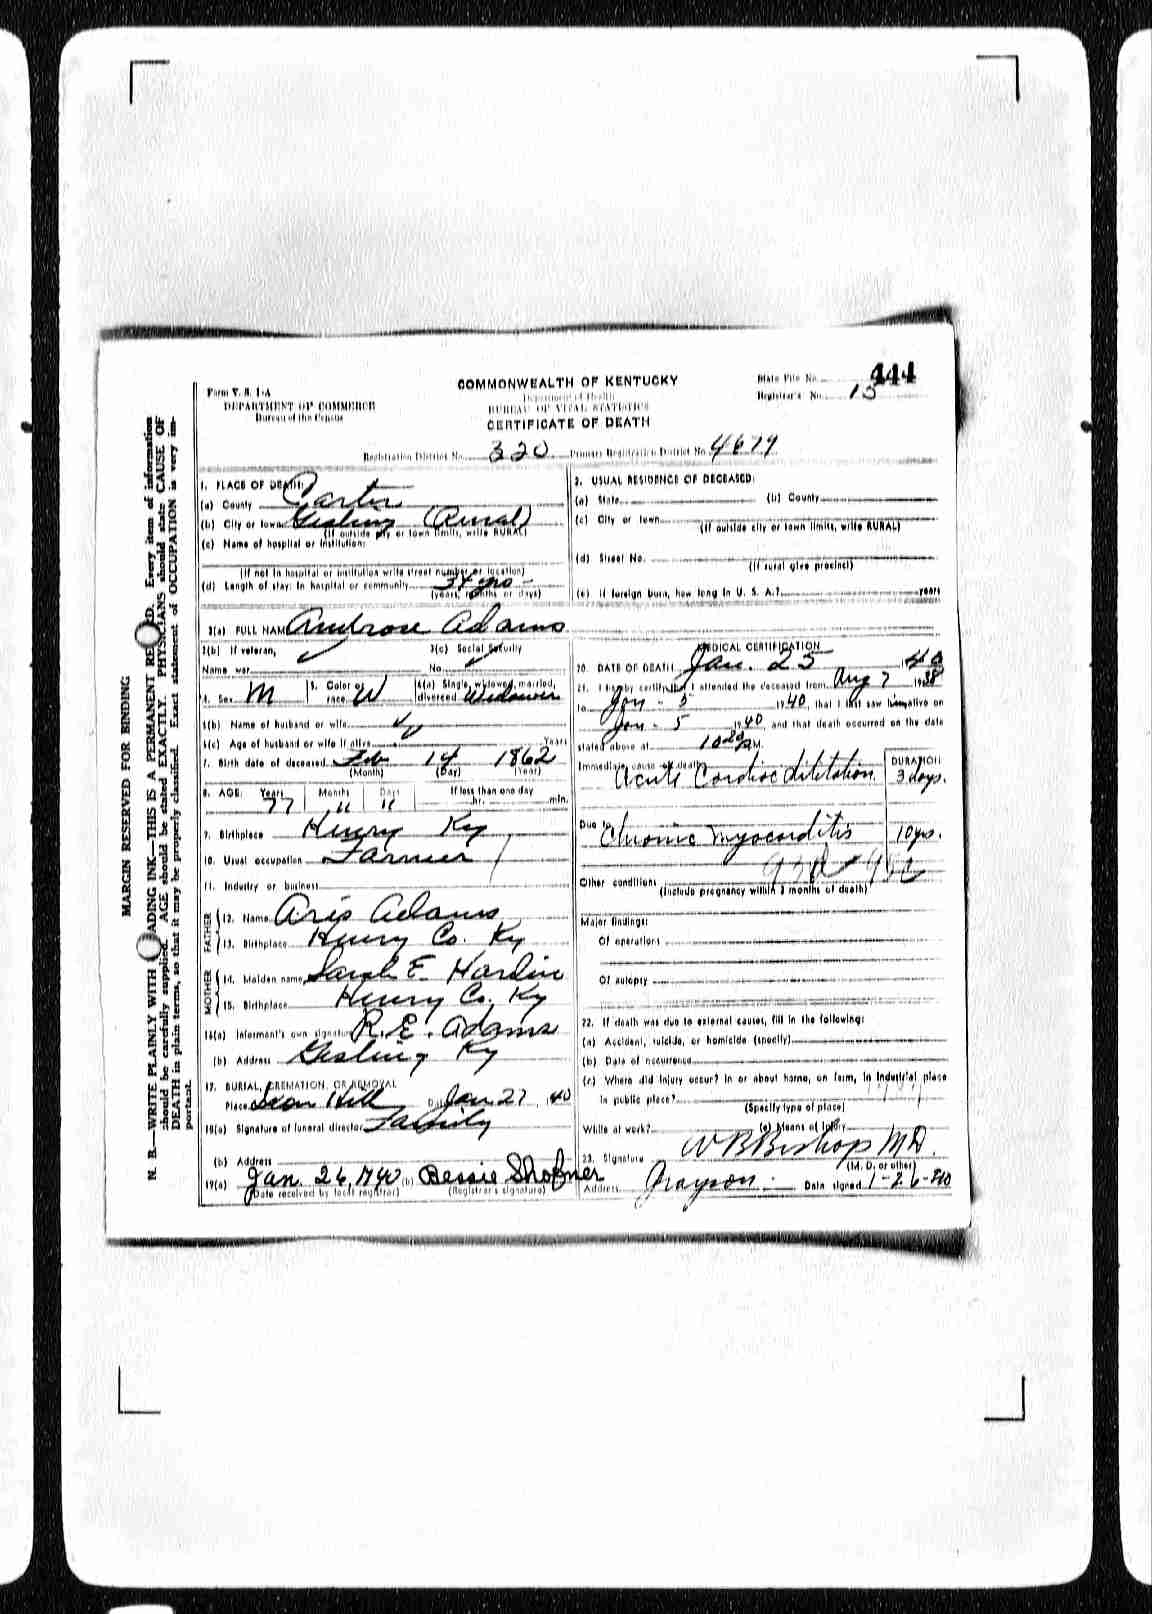 444
State File No.
Registrar's No. 15
Form V. S. 1-A
DEPARTMENT OF COMMERCE
Bureau of the Census
COMMONWEALTH OF KENTUCKY
Department of Health
BUREAU OF VITAL STATISTICS
CERTIFICATE OF DEATH
Registration District No. 320 Primary Registration District No. 4679
MARGIN RESERVED FOR BINDING
N. B.—WRITE PLAINLY WITH ADING INK—THIS IS A PERMANENT RE D. Every item of information
should be carefully supplied. AGE should be stated EXACTLY. PHYSICIANS should state CAUSE OF
DEATH in plain terms, so that it may be properly classified. Exact statement of OCCUPATION is very im-
portant.
1. PLACE OF DEATH:
(a) County Carter
(b) City or town (Rural)
(If outside city or town limits, write RURAL)
(c) Name of hospital or institution:
(If not in hospital or institution write street number or location)
(d) Length of stay: In hospital or community 34 yrs -
(years, months or days)
2. USUAL RESIDENCE OF DECEASED:
(a) State (b) County
(c) City or town
(If outside city or town limits, write RURAL)
(d) Street No.
(If rural give precinct)
(e) If foreign born, how long in U. S. A.? years
3(a) FULL NAME Ambrose Adams
3(b) If veteran,
Name war
3(c) Social Security
No.
4. Sex M
5. Color or
race W
6(a) Single, widowed, married,
divorced Widower
6(b) Name of husband or wife
6(c) Age of husband or wife if alive Years
7. Birth date of deceased Feb 14 1862
(Month) (Day) (Year)
8. AGE: Years Months Days If less than one day
77 11 11 hr. min.
9. Birthplace Henry Ky
10. Usual occupation Farmer
11. Industry or business
FATHER
12. Name Aris Adams
13. Birthplace Henry Co. Ky
MOTHER
14. Maiden name Sarah E. Hardin
15. Birthplace Henry Co. Ky
16(a) Informant's own signature R. E. Adams
(b) Address Ky
17. BURIAL, CREMATION, OR REMOVAL
Place Iron Hill Date Jan 27, 40
18(a) Signature of funeral director Family
(b) Address
19(a) Jan. 26, 1940 (b) Bessie Shofner
(Date received by local registrar) (Registrar's signature)
MEDICAL CERTIFICATION
20. DATE OF DEATH Jan. 25 40
21. I hereby certify that I attended the deceased from Aug 7 1938
to Jan - 5 1940, that I last saw him alive on
Jan - 5 1940 and that death occurred on the date
stated above at M.
Immediate cause of death DURATION
Acute Cardiac dilitation 3 days.
Due to
Chronic myocarditis 10 yrs.
Other conditions
(Include pregnancy within 3 months of death)
Major findings:
Of operations
Of autopsy
22. If death was due to external causes, fill in the following:
(a) Accident, suicide, or homicide (specify)
(b) Date of occurrence
(c) Where did injury occur? In or about home, on farm, in industrial place
in public place?
(Specify type of place)
While at work? (e) Means of injury
23. Signature W B Bishop M D
(M. D. or other)
Address Grayson Date signed 1-26-40